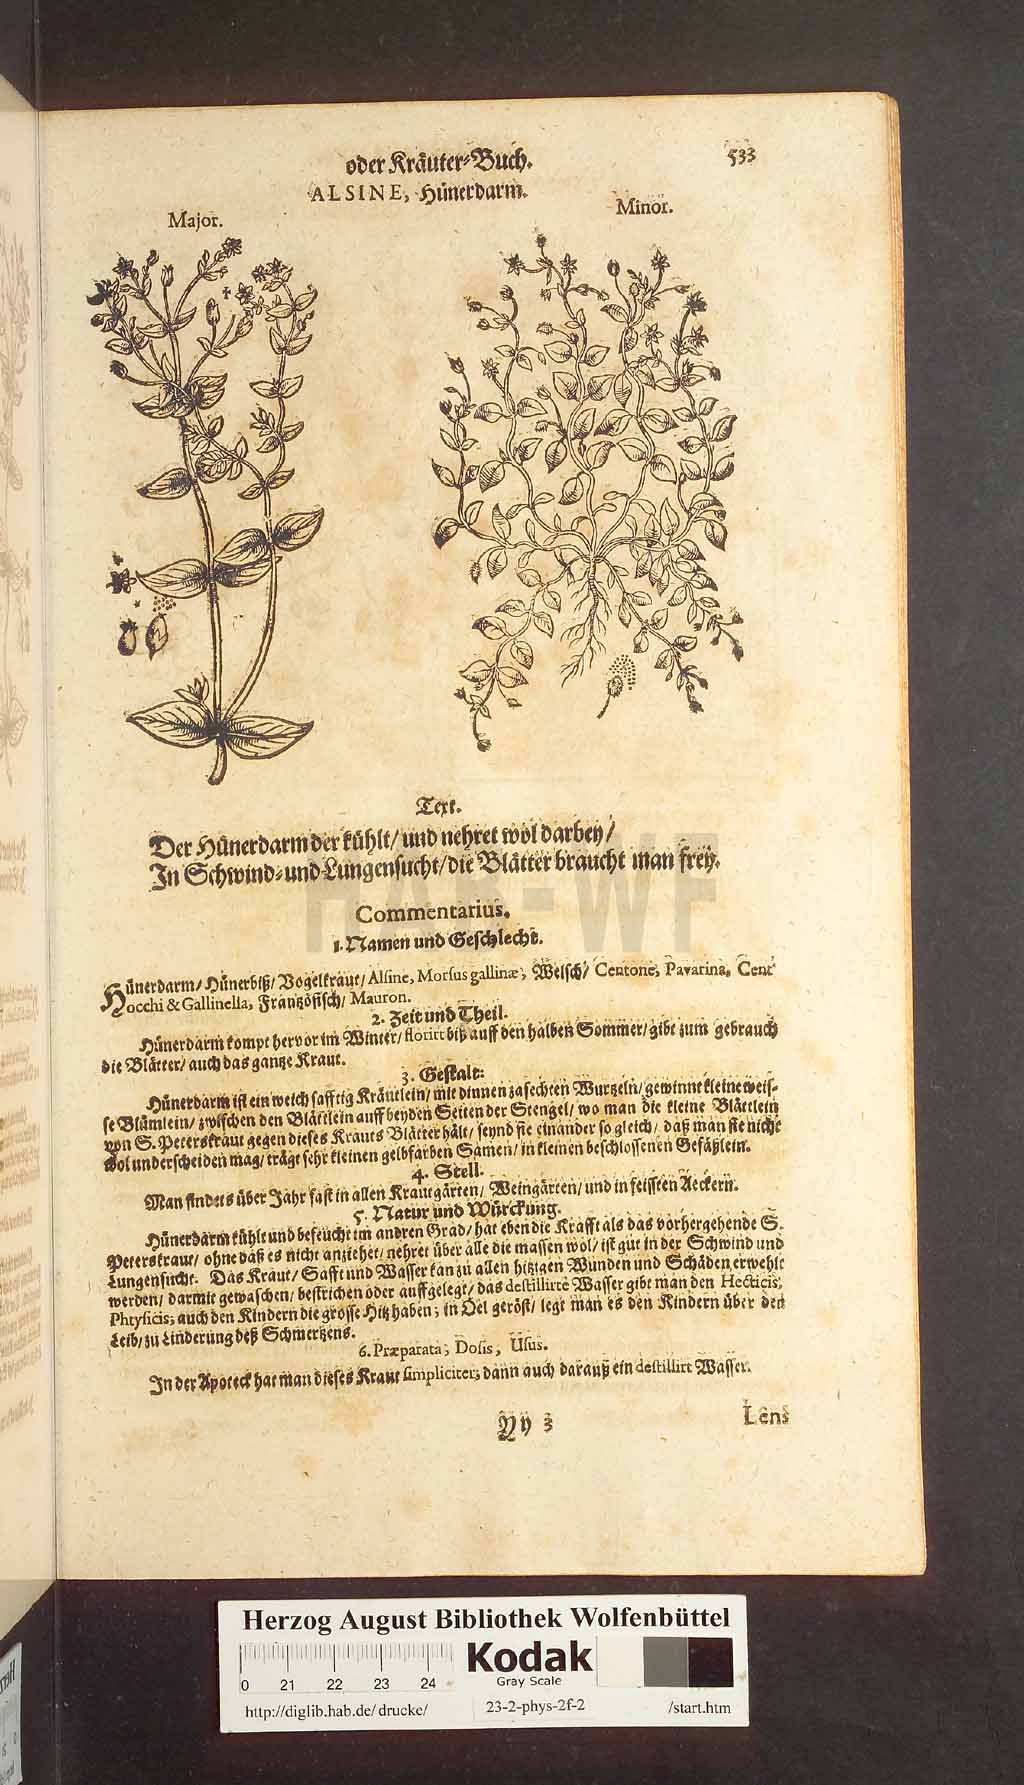 oder Kräuter-Buch. 533
ALSINE, Hünerdarm.
Major. Minor.
Text.
Der Hünerdarm der kühlt/ und nehret wol darbey/
In Schwind- und Lungensucht/ die Blätter braucht man frey.
Commentarius.
1. Namen und Geschlecht.
Hünerdarm/ Hünerbiß/ Vogelkraut/ Alsine, Morsus gallinæ, Welsch/ Centone, Pavarina, Cent
occhi & Gallinella, Frantzösisch/ Mauron.
2. Zeit und Theil.
Hünerdarm kompt hervor im Winter/ florirt biß auff den halben Sommer/ gibt zum gebrauch
die Blätter/ auch das gantze Kraut.
3. Gestalt:
Hünerdarm ist ein weich safftig Kräutlein/ mit dinnen zasechten Wurtzeln/ gewinnt kleine weis-
se Blümlein/ zwischen den Blättlein auff beyden Seiten der Stengel/ wo man die kleine Blättlein
von S. Peterskraut gegen dieses Krauts Blätter hält/ seynd sie einander so gleich/ daß man sie nicht
wol underscheiden mag/ trägt sehr kleinen gelbfarben Samen/ in kleinen beschlossenen Gefäßlein.
4. Stell.
Man findets über Jahr fast in allen Krautgärten/ Weingärten/ und in feissten Aeckern.
5. Natur und Würckung.
Hünerdarm kühlt und befeucht im andren Grad/ hat eben die Krafft als das vorhergehende S.
Peterskraut/ ohne daß es nicht anziehet/ nehret über alle die massen wol/ ist gut in der Schwind und
Lungensucht. Das Kraut/ Safft und Wasser kan zu allen hitzigen Wunden und Schäden erwehlt
werden/ darmit gewaschen/ bestrichen oder auffgelegt/ das destillirte Wasser gibt man den Hecticis,
Phtysicis, auch den Kindern die grosse Hitz haben; in Oel geröst/ legt man es den Kindern über den
Leib/ zu Linderung deß Schmertzens.
6. Præparata, Dosis, Usus.
In der Apoteck hat man dieses Kraut simpliciter; dann auch darauß ein destillirt Wasser.
Yy 3 Lens
HAB-WF
Herzog August Bibliothek Wolfenbüttel
0 21 22 23 24 Kodak
Gray Scale
http://diglib.hab.de/drucke/ 23-2-phys-2f-2 /start.htm